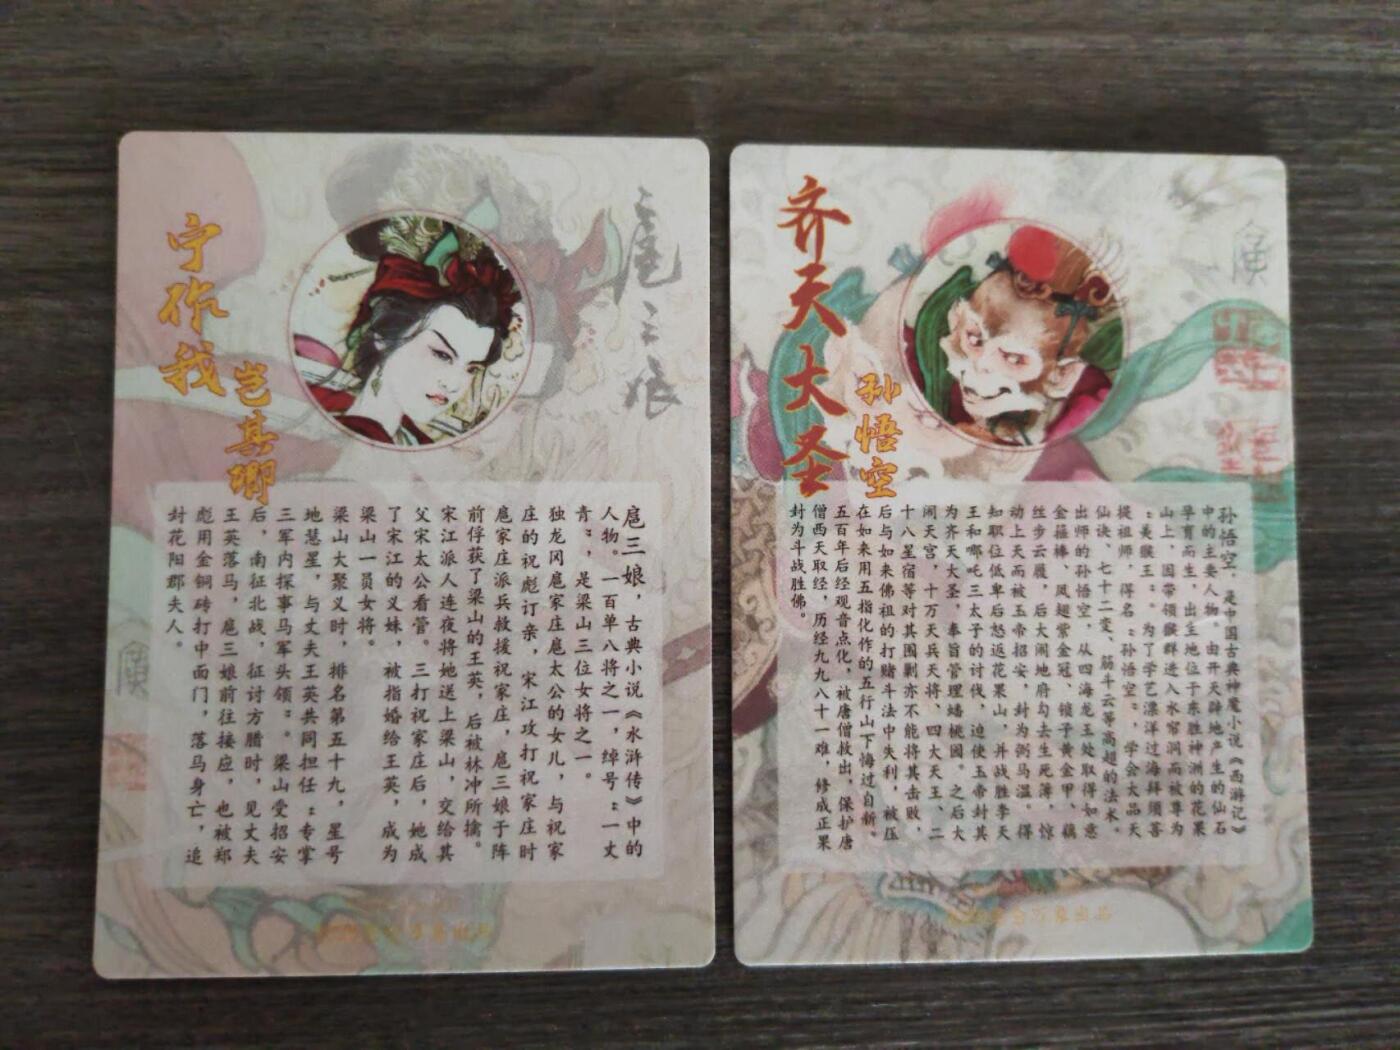 宁作我
岂其卿
扈三娘
扈三娘，古典小说《水浒传》中的
人物。一百单八将之一，绰号：一丈
青：，是梁山三位女将之一。
独龙冈扈家庄扈太公的女儿，与祝家
庄的祝彪订亲，宋江攻打祝家庄时
扈家庄派兵救援祝家庄，扈三娘于阵
前俘获了梁山的王英，后被林冲所擒。
宋江派人连夜将她送上梁山，交给其
父宋太公看管。三打祝家庄后，她成
了宋江的义妹，被指婚给王英，成为
梁山一员女将。
梁山大聚义时，排名第五十九，星号
地慧星，与丈夫王英共同担任：专掌
三军内探事马军头领：。梁山受招安
后，南征北战，征讨方腊时，见丈夫
王英落马，扈三娘前往接应，也被郑
彪用金铜砖打中面门，落马身亡，追
封花阳郡夫人。
齐天大圣
孙悟空
孙悟空，是中国古典神魔小说《西游记》
中的主要人物。由开天辟地产生的仙石
孕育而生，出生地位于东胜神洲的花果
山上，因带领猴群进入水帘洞而被尊为
：美猴王：。为了学艺漂洋过海拜须菩
提祖师，得名：孙悟空：，学会大品天
仙诀、七十二变、筋斗云等高超的法术。
出师的孙悟空，从四海龙王处取得如意
金箍棒、凤翅紫金冠、锁子黄金甲、藕
丝步云履，后大闹地府勾去生死簿，惊
动上天而被玉帝招安，封为弼马温。得
知职位低卑后怒返花果山，并战胜李天
王和哪吒三太子的讨伐，迫使玉帝封其
为齐天大圣，奉旨管理蟠桃园。之后大
闹天宫，十万天兵天将、四大天王、二
十八星宿等对其围剿亦不能将其击败，
后与如来佛祖的打赌斗法中失利，被压
在如来用五指化作的五行山下悔过自新。
五百年后经观音点化，被唐僧救出，保护唐
僧西天取经，历经九九八十一难，修成正果
封为斗战胜佛。